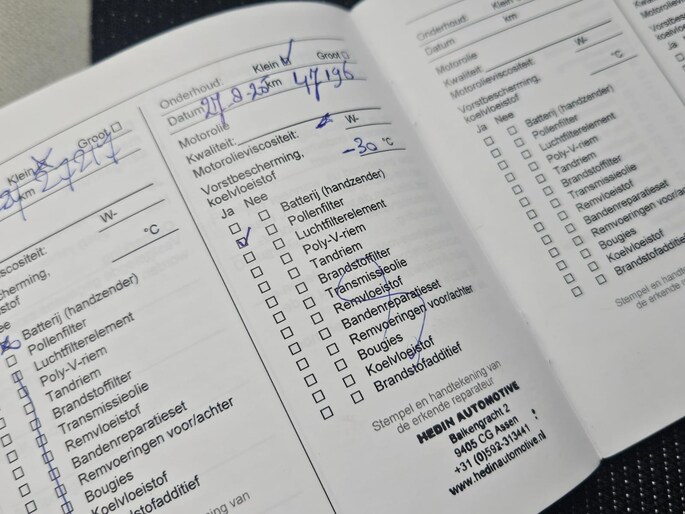 Klein Groot
24 km 27217
W-
iscositeit:
cherming, °C
stof
Nee
Batterij (handzender)
Pollenfilter
Luchtfilterelement
Poly-V-riem
Tandriem
Brandstoffilter
Transmissieolie
Remvloeistof
Bandenreparatieset
Remvoeringen voor/achter
Bougies
Koelvloeistof
Brandstofadditief
kening van
Onderhoud: Klein Groot
Datum 27.8-25 km 47196
Motorolie
Kwaliteit: W-
Motorolieviscositeit:
Vorstbescherming, -30 °C
koelvloeistof
Ja Nee
Batterij (handzender)
Pollenfilter
Luchtfilterelement
Poly-V-riem
Tandriem
Brandstoffilter
Transmissieolie
Remvloeistof
Bandenreparatieset
Remvoeringen voor/achter
Bougies
Koelvloeistof
Brandstofadditief
Stempel en handtekening van
de erkende reparateur
HEDIN AUTOMOTIVE
Balkengracht 2
9405 CG Assen
+31 (0)592-313441
www.hedinautomotive.nl
Onderhoud: Klein
Datum km:
Motorolie
Kwaliteit: W-
Motorolieviscositeit:
Vorstbescherming, °C
koelvloeistof
Ja Nee
Batterij (handzender)
Pollenfilter
Luchtfilterelement
Poly-V-riem
Tandriem
Brandstoffilter
Transmissieolie
Remvloeistof
Bandenreparatieset
Remvoeringen voor/achter
Bougies
Koelvloeistof
Brandstofadditief
Stempel en handtekening
de erkende reparateur